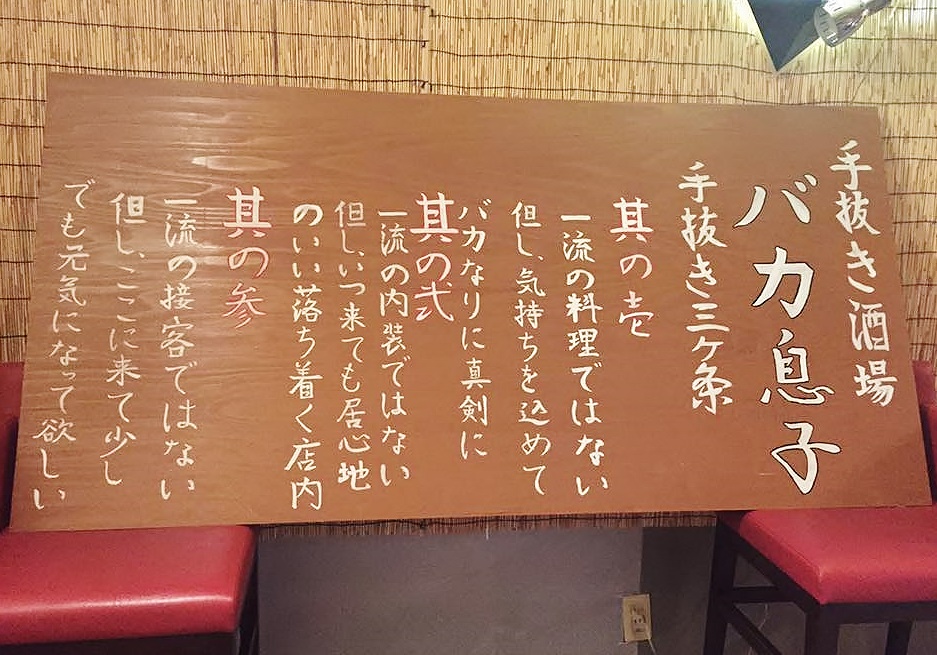 手抜き酒場
バカ息子
手抜き三ヶ条
其の壱
一流の料理ではない
但し、気持ちを込めて
バカなりに真剣に
其の弐
一流の内装ではない
但し、いつ来ても居心地
のいい落ち着く店内
其の参
一流の接客ではない
但し、ここに来て少し
でも元気になって欲しい